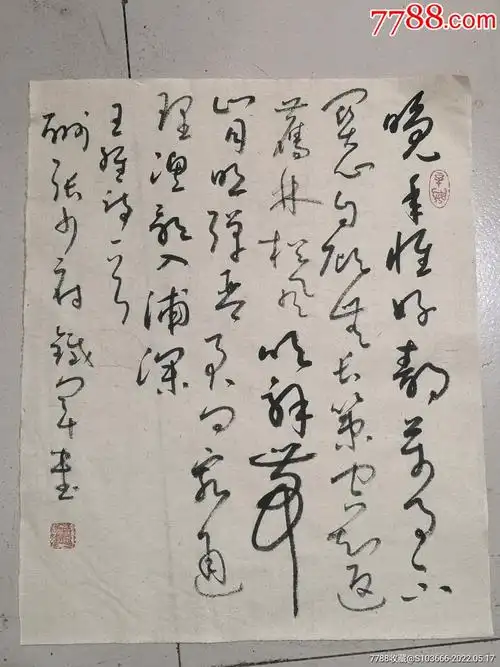 7788.com
晚年惟好静万事不
关心自顾无长策空知返
舊林松风吹解带
山月照弹琴君问穷通
理渔歌入浦深
王维诗一首
酬张少府 鐵军书
7788收藏@S103666-2022.05.17